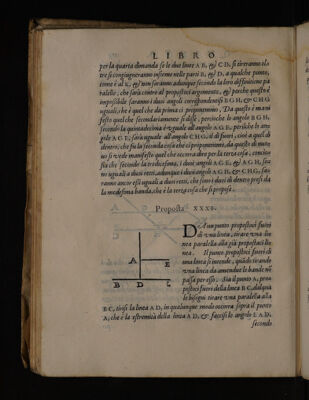 LIBRO
per la quarta dimanda se le due linee A B, & C D, si tireranno oltre si congiugneranno insieme nelle parti B, & D, a qualche punto,
come è al K, & non saranno adunque secondo la loro diffinitione pa
ralelle, che sarà contro al propostoci argumento, & perche questo è
impossibile saranno i duoi angoli corrispondentisi B G H, & C H G
uguali, che è quel che da prima ci proponemmo. Da questo è mani
festo quel che secondariamente si disse, percioche lo angolo B G H,
secondo la quintadecima è uguale all'angolo A G E, perilche lo an
golo A G E, sarà uguale all'angolo C H G, il di fuori, cioè a quel di
dentro, che fu la seconda cosa che ci proponemmo, da questo di nuo
uo si uede manifesto quel che occorra dire per la terza cosa, concio
sia che secondo la tredicesima, i duoi angoli A G E, & A G H, so
no uguali a duoi retti, adunque i duoi angoli A G H, & C H G, sa
ranno ancor essi uguali a duoi retti, che sono i duoi di dentro presi da
la medesima banda, che è la terza cosa che si propose.
Proposta XXXI.
DA un punto propostoci fuori
di una linea, tirare una li
nea paralella alla già propostaci li
nea. Il punto propostoci fuori di
una linea si intende, quando tirando
una linea da amendue le bande nō
passa per esso. Sia il punto A, pro
postoci fuori della linea B C, dal qua
le bisogni tirare una paralella alla
B C, tirisi la linea A D, in qualunque modo occorra sopra il punto
A, che è la estremità della linea A D, & faccisi lo angolo E A D,
secondo
A
E
B D C